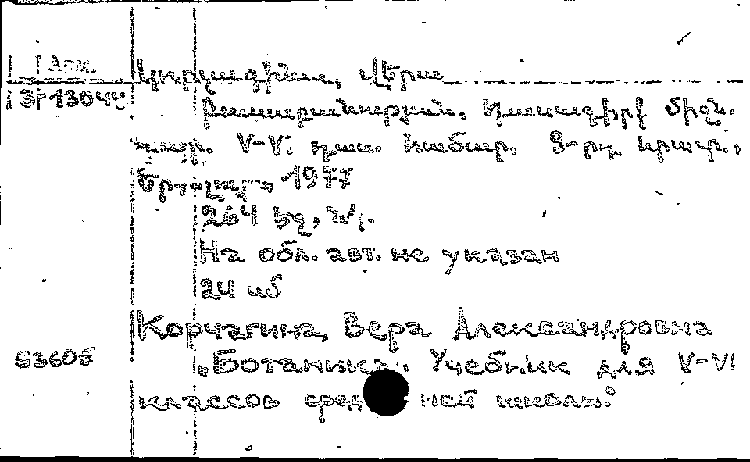 Арм.
3Г13044
Կորչագինա, Վերա
Բուսաբանություն. Դասագիրք միջն.
դպր. V-VI դաս. համար. 9-րդ հրատ.,
Եր., Լույս, 1977
264 էջ, նկ.
На обл. авт. не указан
24 սմ
Корчагина, Вера Александровна
63605 Ботаника. Учебник для V-VI
классов средней школы.